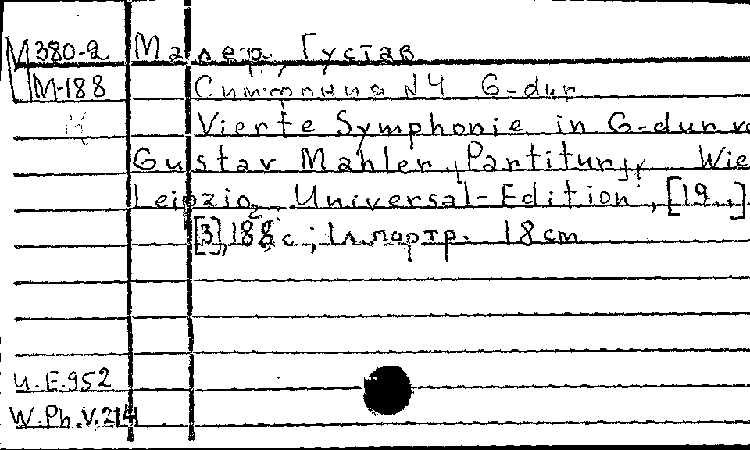 М380-2 Малер, Густав
М-188 Симфония №4 G-dur
Vierte Symphonie in G-dur vo
Gustav Mahler, Partitur, Wie
Leipzig, Universal-Edition, [19..].
[3], 188 с; 1л.портр. 18 cm
U.E.952
W.Ph.V.214